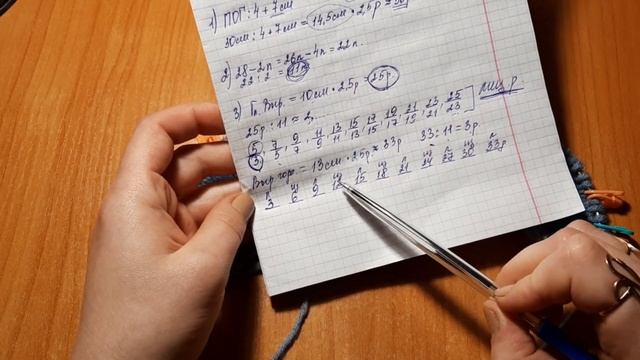 1) ПОГ: 4 + 7см
30см : 4 + 7см = 14,5см · 2,5р =
2) 28 - 2п = 26п - 4п = 22п.
22 : 2 = 11п
3) Гл. Выр. = 10см · 2,5р = 25р.
25р : 11 = 2,
5, 7, 9, 11, 13, 15, 17, 19, 21, 23, 25
3, 5, 7, 9, 11, 13, 15, 17, 19, 21, 23 лиц. р.
Выр. гор. = 13см · 2,5р ≈ 33р 33 : 11 = 3р.
л и л и л и л и л и л
3 6 9 12 15 18 21 24 27 30 33р